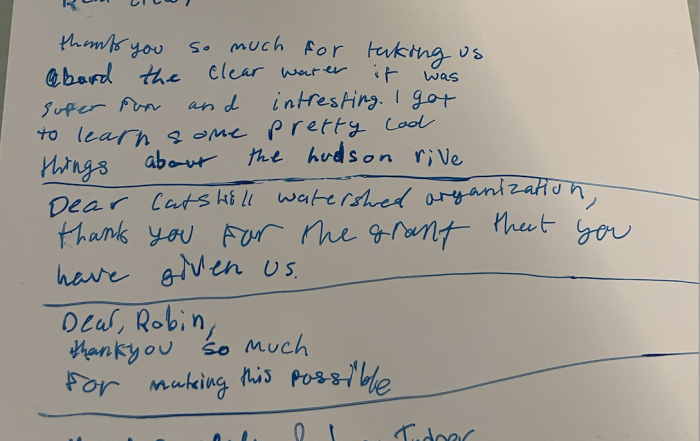 Dear Crew,
thankyou so much for taking us
aboard the clear water it was
super fun and intresting. I got
to learn some pretty cool
things about the hudson rive
Dear Catskill watershed organization,
thank you for the grant that you
have given us.
Dear, Robin,
thankyou so much
for making this possible